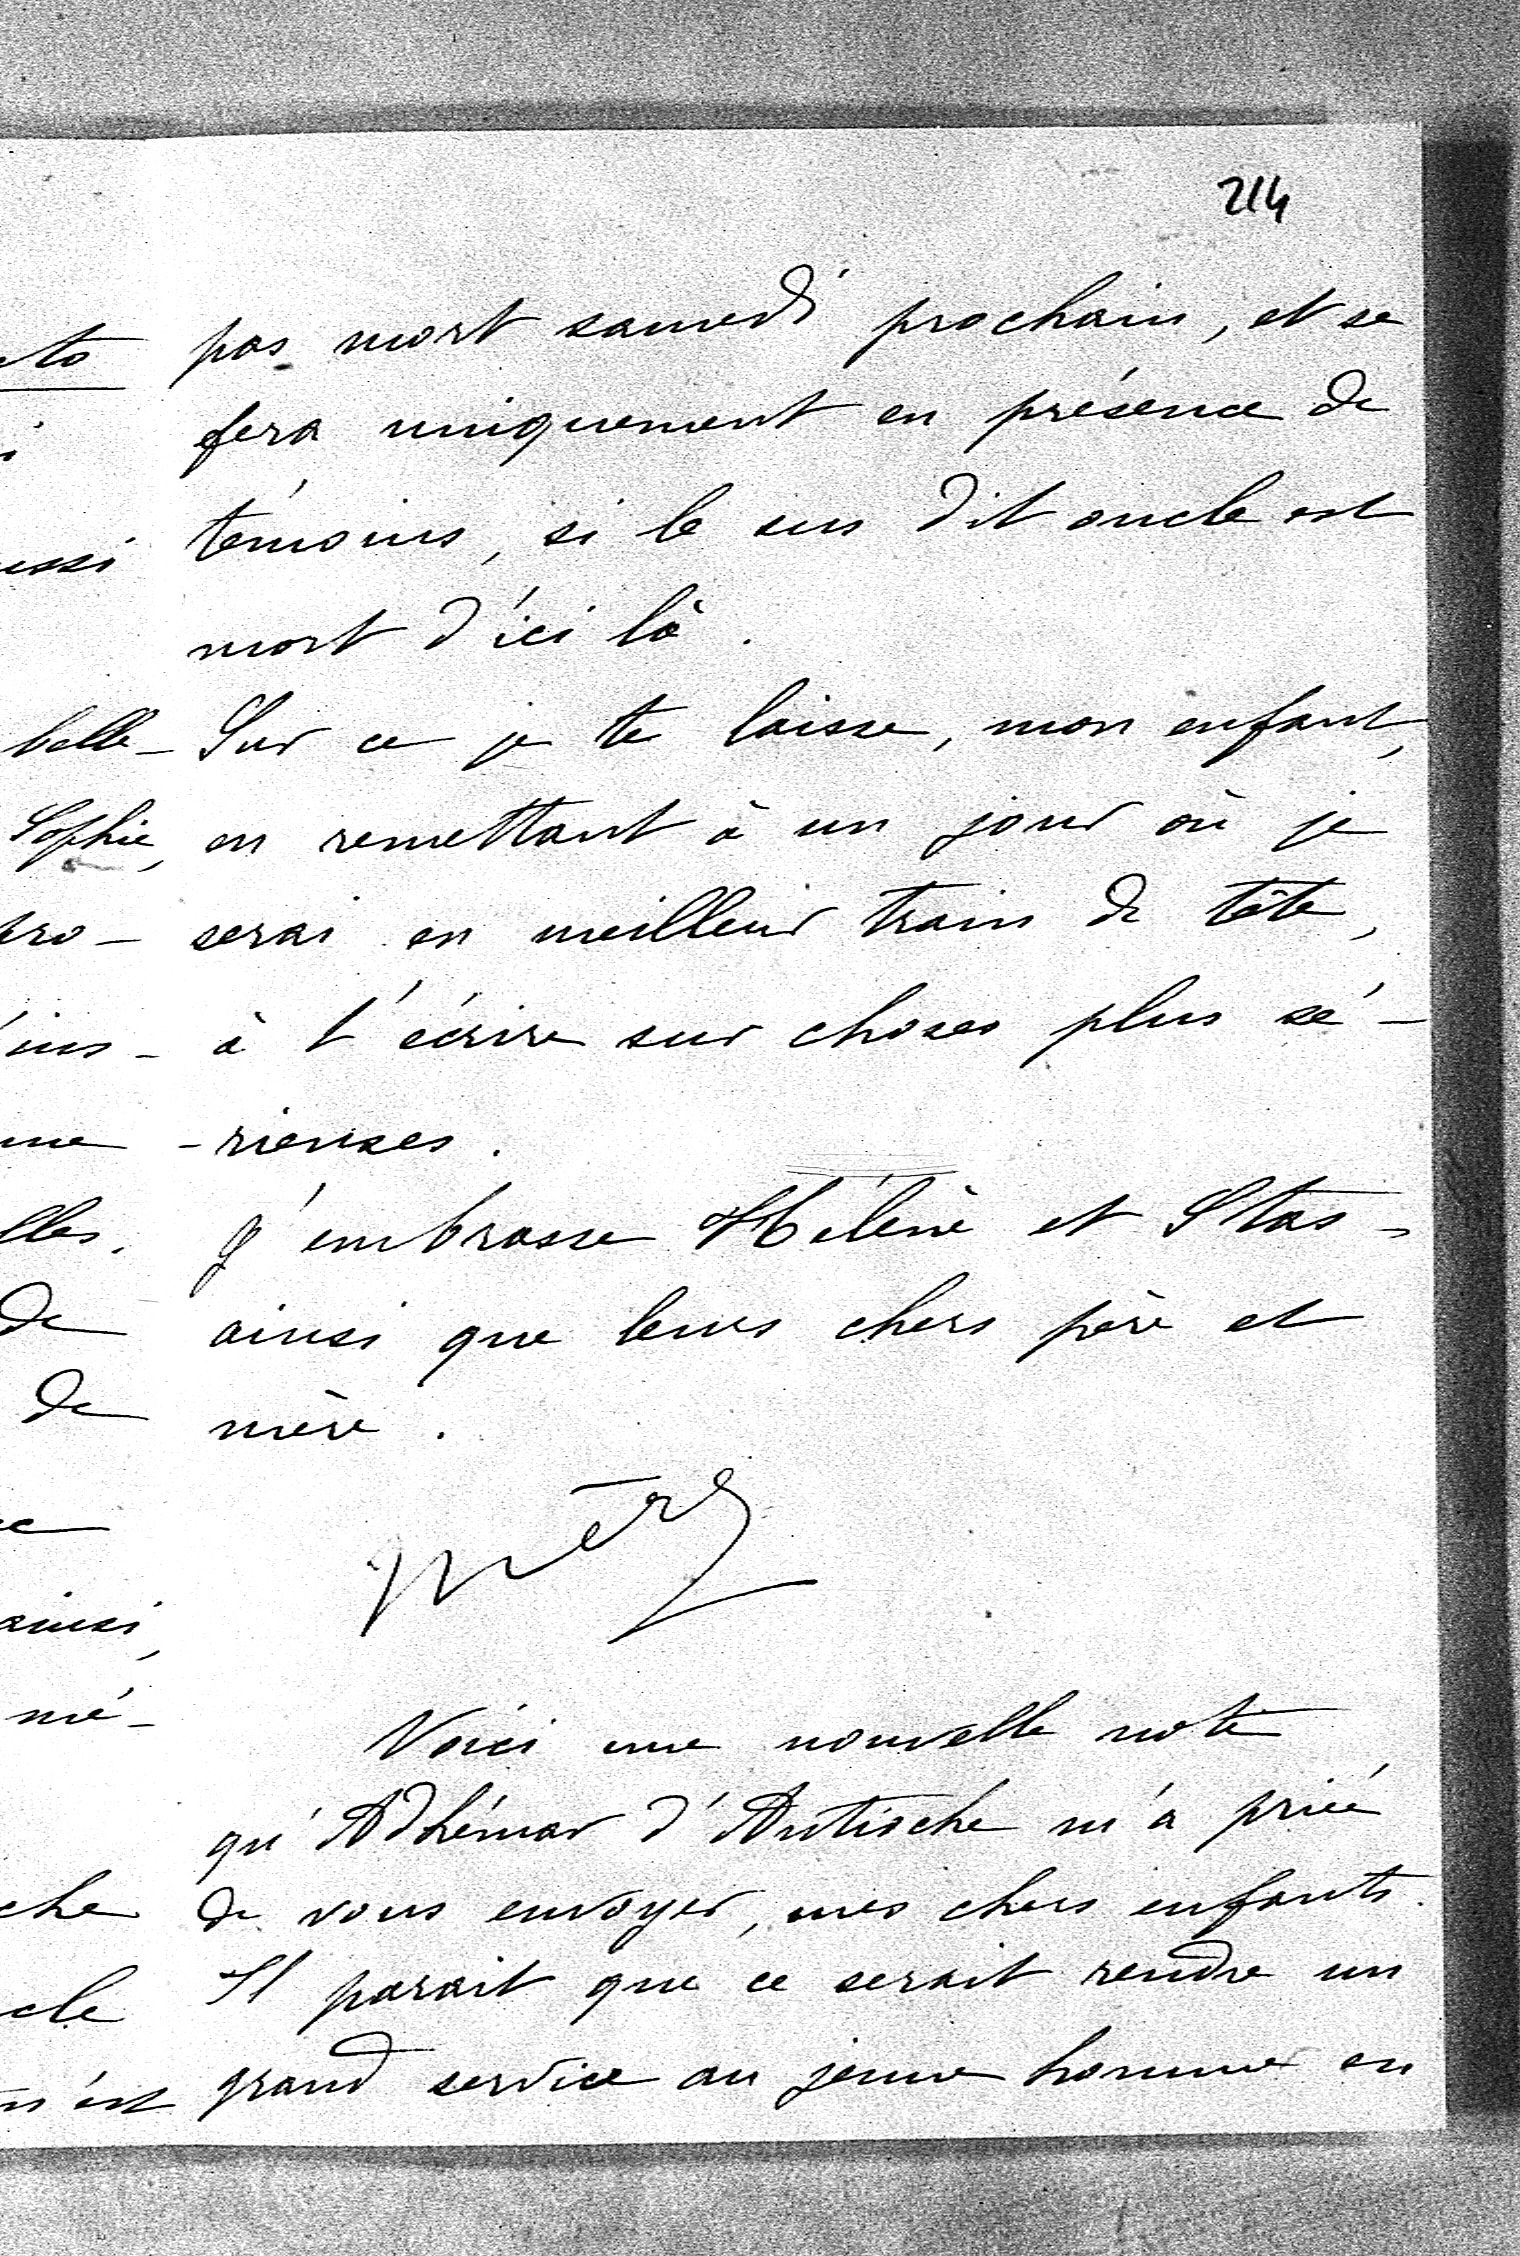 214
pas mort samedi prochain, et se
fera uniquement en présence de
témoins, si le sus dit oncle est
mort d'ici là.
Sur ce je te laisse, mon enfant,
en remettant à un jour où je
serai en meilleur train de tête,
à t'écrire sur choses plus sé-
-rieuses.
J'embrasse Hélène et Stas-
ainsi que leurs chers père et
mère.
Mère
Voici une nouvelle note
qu'Adhémar d'Antioche m'a priée
de vous envoyer, mes chers enfants.
Il parait que ce serait rendre un
grand service au jeune homme en
ussi
belle-
Sophie,
pro-
lles.
de
de
ainsi,
mé-
che
cle
n'est